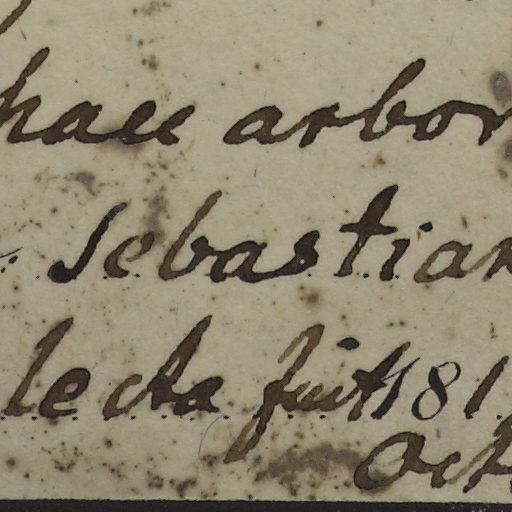 haec arbor
Sebastian
lecta fuit 181
Oct